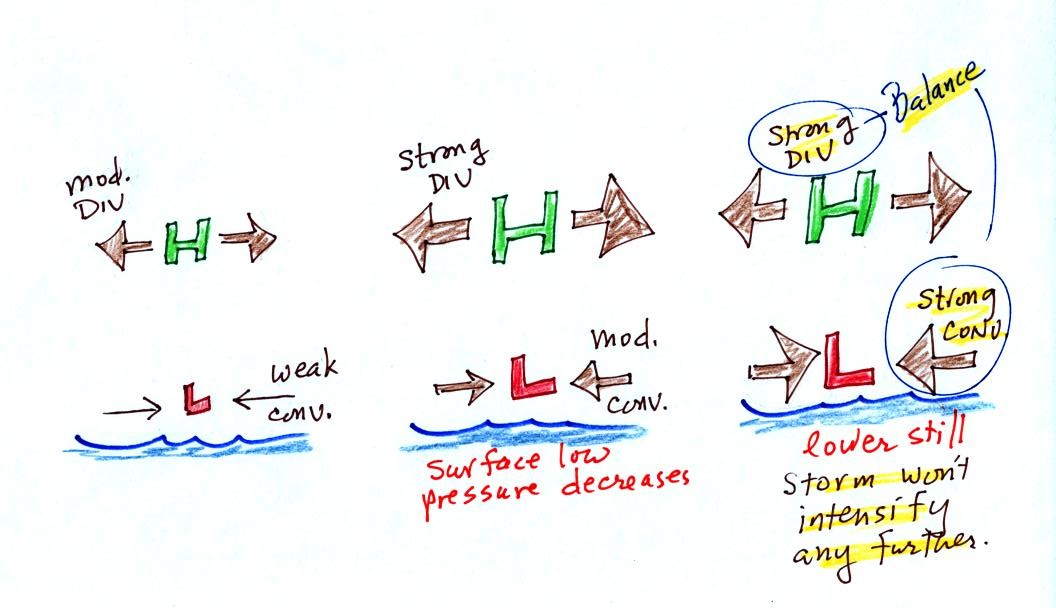 mod.
DIV
H
strong
DIV
H
Strong
DIV
Balance
H
L
weak
conv.
L
mod.
conv.
surface low
pressure decreases
L
strong
conv.
lower still
Storm won't
intensify
any further.